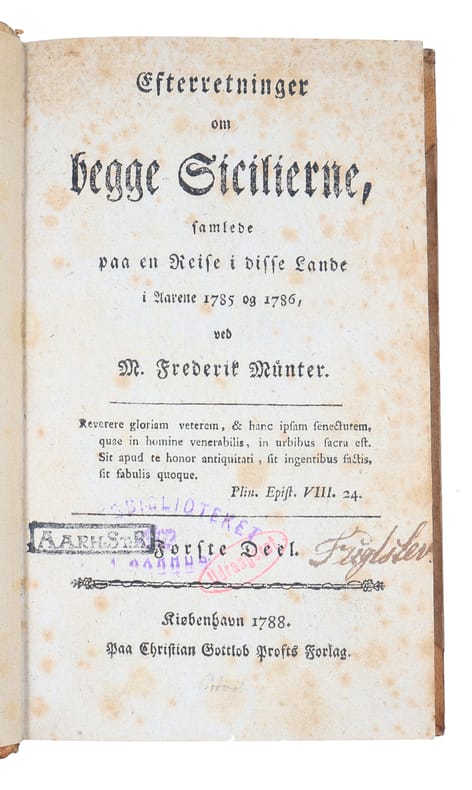 Efterretninger
om
begge Sicilierne,
samlede
paa en Reise i disse Lande
i Aarene 1785 og 1786,
ved
M. Frederik Münter.
Reverere gloriam veterem, & hanc ipsam senectutem,
quae in homine venerabilis, in urbibus sacra est.
Sit apud te honor antiquitati, sit ingentibus factis,
sit fabulis quoque.
Plin. Epist. VIII. 24.
BIBLIOTEKET
AARH.STB.
Første Deel.
Udrangeret
Fuglslev
Kiøbenhavn 1788.
Paa Christian Gottlob Profts Forlag.